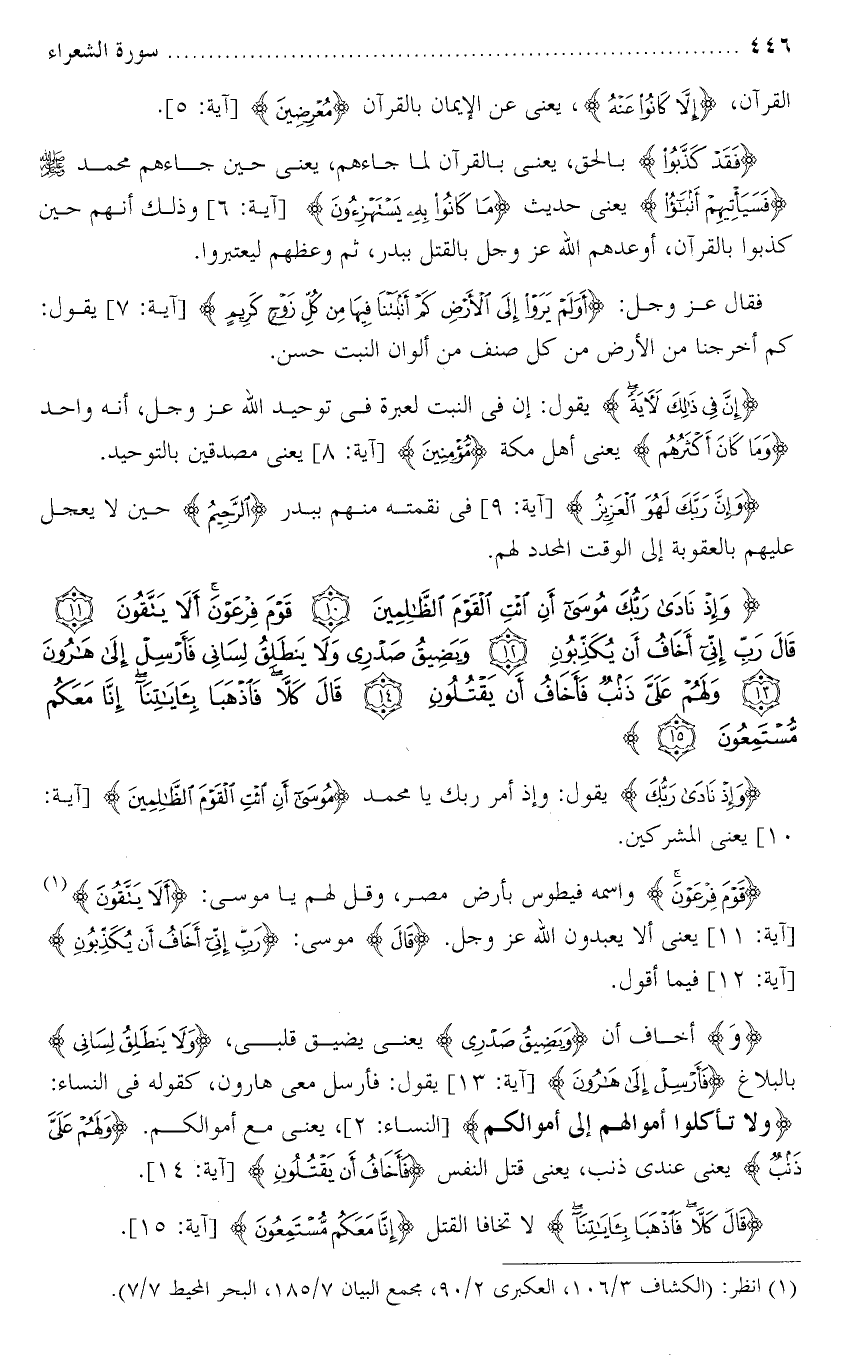 ٤٤٦ ........................................................................ سورة الشعراء
القرآن، ﴿إِلَّا كَانُوا۟ عَنْهُ﴾، يعنى عن الإيمان بالقرآن ﴿مُعْرِضِينَ﴾ [آية: ٥].
﴿فَقَدْ كَذَّبُوا۟﴾ بالحق، يعنى بالقرآن لما جاءهم، يعنى حين جاءهم محمد ﷺ
﴿فَسَيَأْتِيهِمْ أَنۢبَـٰٓؤُا۟﴾ يعنى حديث ﴿مَا كَانُوا۟ بِهِۦ يَسْتَهْزِءُونَ﴾ [آية: ٦] وذلك أنهم حين
كذبوا بالقرآن، أوعدهم الله عز وجل بالقتل ببدر، ثم وعظهم ليعتبروا.
فقال عز وجل: ﴿أَوَلَمْ يَرَوْا۟ إِلَى ٱلْأَرْضِ كَمْ أَنۢبَتْنَا فِيهَا مِن كُلِّ زَوْجٍ كَرِيمٍ﴾ [آية: ٧] يقول:
كم أخرجنا من الأرض من كل صنف من ألوان النبت حسن.
﴿إِنَّ فِى ذَٰلِكَ لَـَٔايَةً ۖ﴾ يقول: إن فى النبت لعبرة فى توحيد الله عز وجل، أنه واحد
﴿وَمَا كَانَ أَكْثَرُهُم﴾ يعنى أهل مكة ﴿مُّؤْمِنِينَ﴾ [آية: ٨] يعنى مصدقين بالتوحيد.
﴿وَإِنَّ رَبَّكَ لَهُوَ ٱلْعَزِيزُ﴾ [آية: ٩] فى نقمته منهم ببدر ﴿ٱلرَّحِيمُ﴾ حين لا يعجل
عليهم بالعقوبة إلى الوقت المحدد لهم.
﴿وَإِذْ نَادَىٰ رَبُّكَ مُوسَىٰٓ أَنِ ٱئْتِ ٱلْقَوْمَ ٱلظَّـٰلِمِينَ ١٠ قَوْمَ فِرْعَوْنَ ۚ أَلَا يَتَّقُونَ ١١
قَالَ رَبِّ إِنِّىٓ أَخَافُ أَن يُكَذِّبُونِ ١٢ وَيَضِيقُ صَدْرِى وَلَا يَنطَلِقُ لِسَانِى فَأَرْسِلْ إِلَىٰ هَـٰرُونَ
١٣ وَلَهُمْ عَلَىَّ ذَنۢبٌ فَأَخَافُ أَن يَقْتُلُونِ ١٤ قَالَ كَلَّا ۖ فَٱذْهَبَا بِـَٔايَـٰتِنَآ ۖ إِنَّا مَعَكُم
مُّسْتَمِعُونَ ١٥﴾
﴿وَإِذْ نَادَىٰ رَبُّكَ﴾ يقول: وإذ أمر ربك يا محمد ﴿مُوسَىٰٓ أَنِ ٱئْتِ ٱلْقَوْمَ ٱلظَّـٰلِمِينَ﴾ [آية:
١٠] يعنى المشركين.
﴿قَوْمَ فِرْعَوْنَ ۚ﴾ واسمه فيطوس بأرض مصر، وقل لهم يا موسى: ﴿أَلَا يَتَّقُونَ﴾(١)
[آية: ١١] يعنى ألا يعبدون الله عز وجل. ﴿قَالَ﴾ موسى: ﴿رَبِّ إِنِّىٓ أَخَافُ أَن يُكَذِّبُونِ﴾
[آية: ١٢] فيما أقول.
﴿وَ﴾ أخاف أن ﴿وَيَضِيقُ صَدْرِى﴾ يعنى يضيق قلبى، ﴿وَلَا يَنطَلِقُ لِسَانِى﴾
بالبلاغ ﴿فَأَرْسِلْ إِلَىٰ هَـٰرُونَ﴾ [آية: ١٣] يقول: فأرسل معى هارون، كقوله فى النساء:
﴿ولا تأكلوا أموالهم إلى أموالكم﴾ [النساء: ٢]، يعنى مع أموالكم. ﴿وَلَهُمْ عَلَىَّ
ذَنۢبٌ﴾ يعنى عندى ذنب، يعنى قتل النفس ﴿فَأَخَافُ أَن يَقْتُلُونِ﴾ [آية: ١٤].
﴿قَالَ كَلَّا ۖ فَٱذْهَبَا بِـَٔايَـٰتِنَآ ۖ﴾ لا تخافا القتل ﴿إِنَّا مَعَكُم مُّسْتَمِعُونَ﴾ [آية: ١٥].
(١) انظر: (الكشاف ١٠٦/٣، العكبرى ٩٠/٢، مجمع البيان ١٨٥/٧، البحر المحيط ٧/٧).